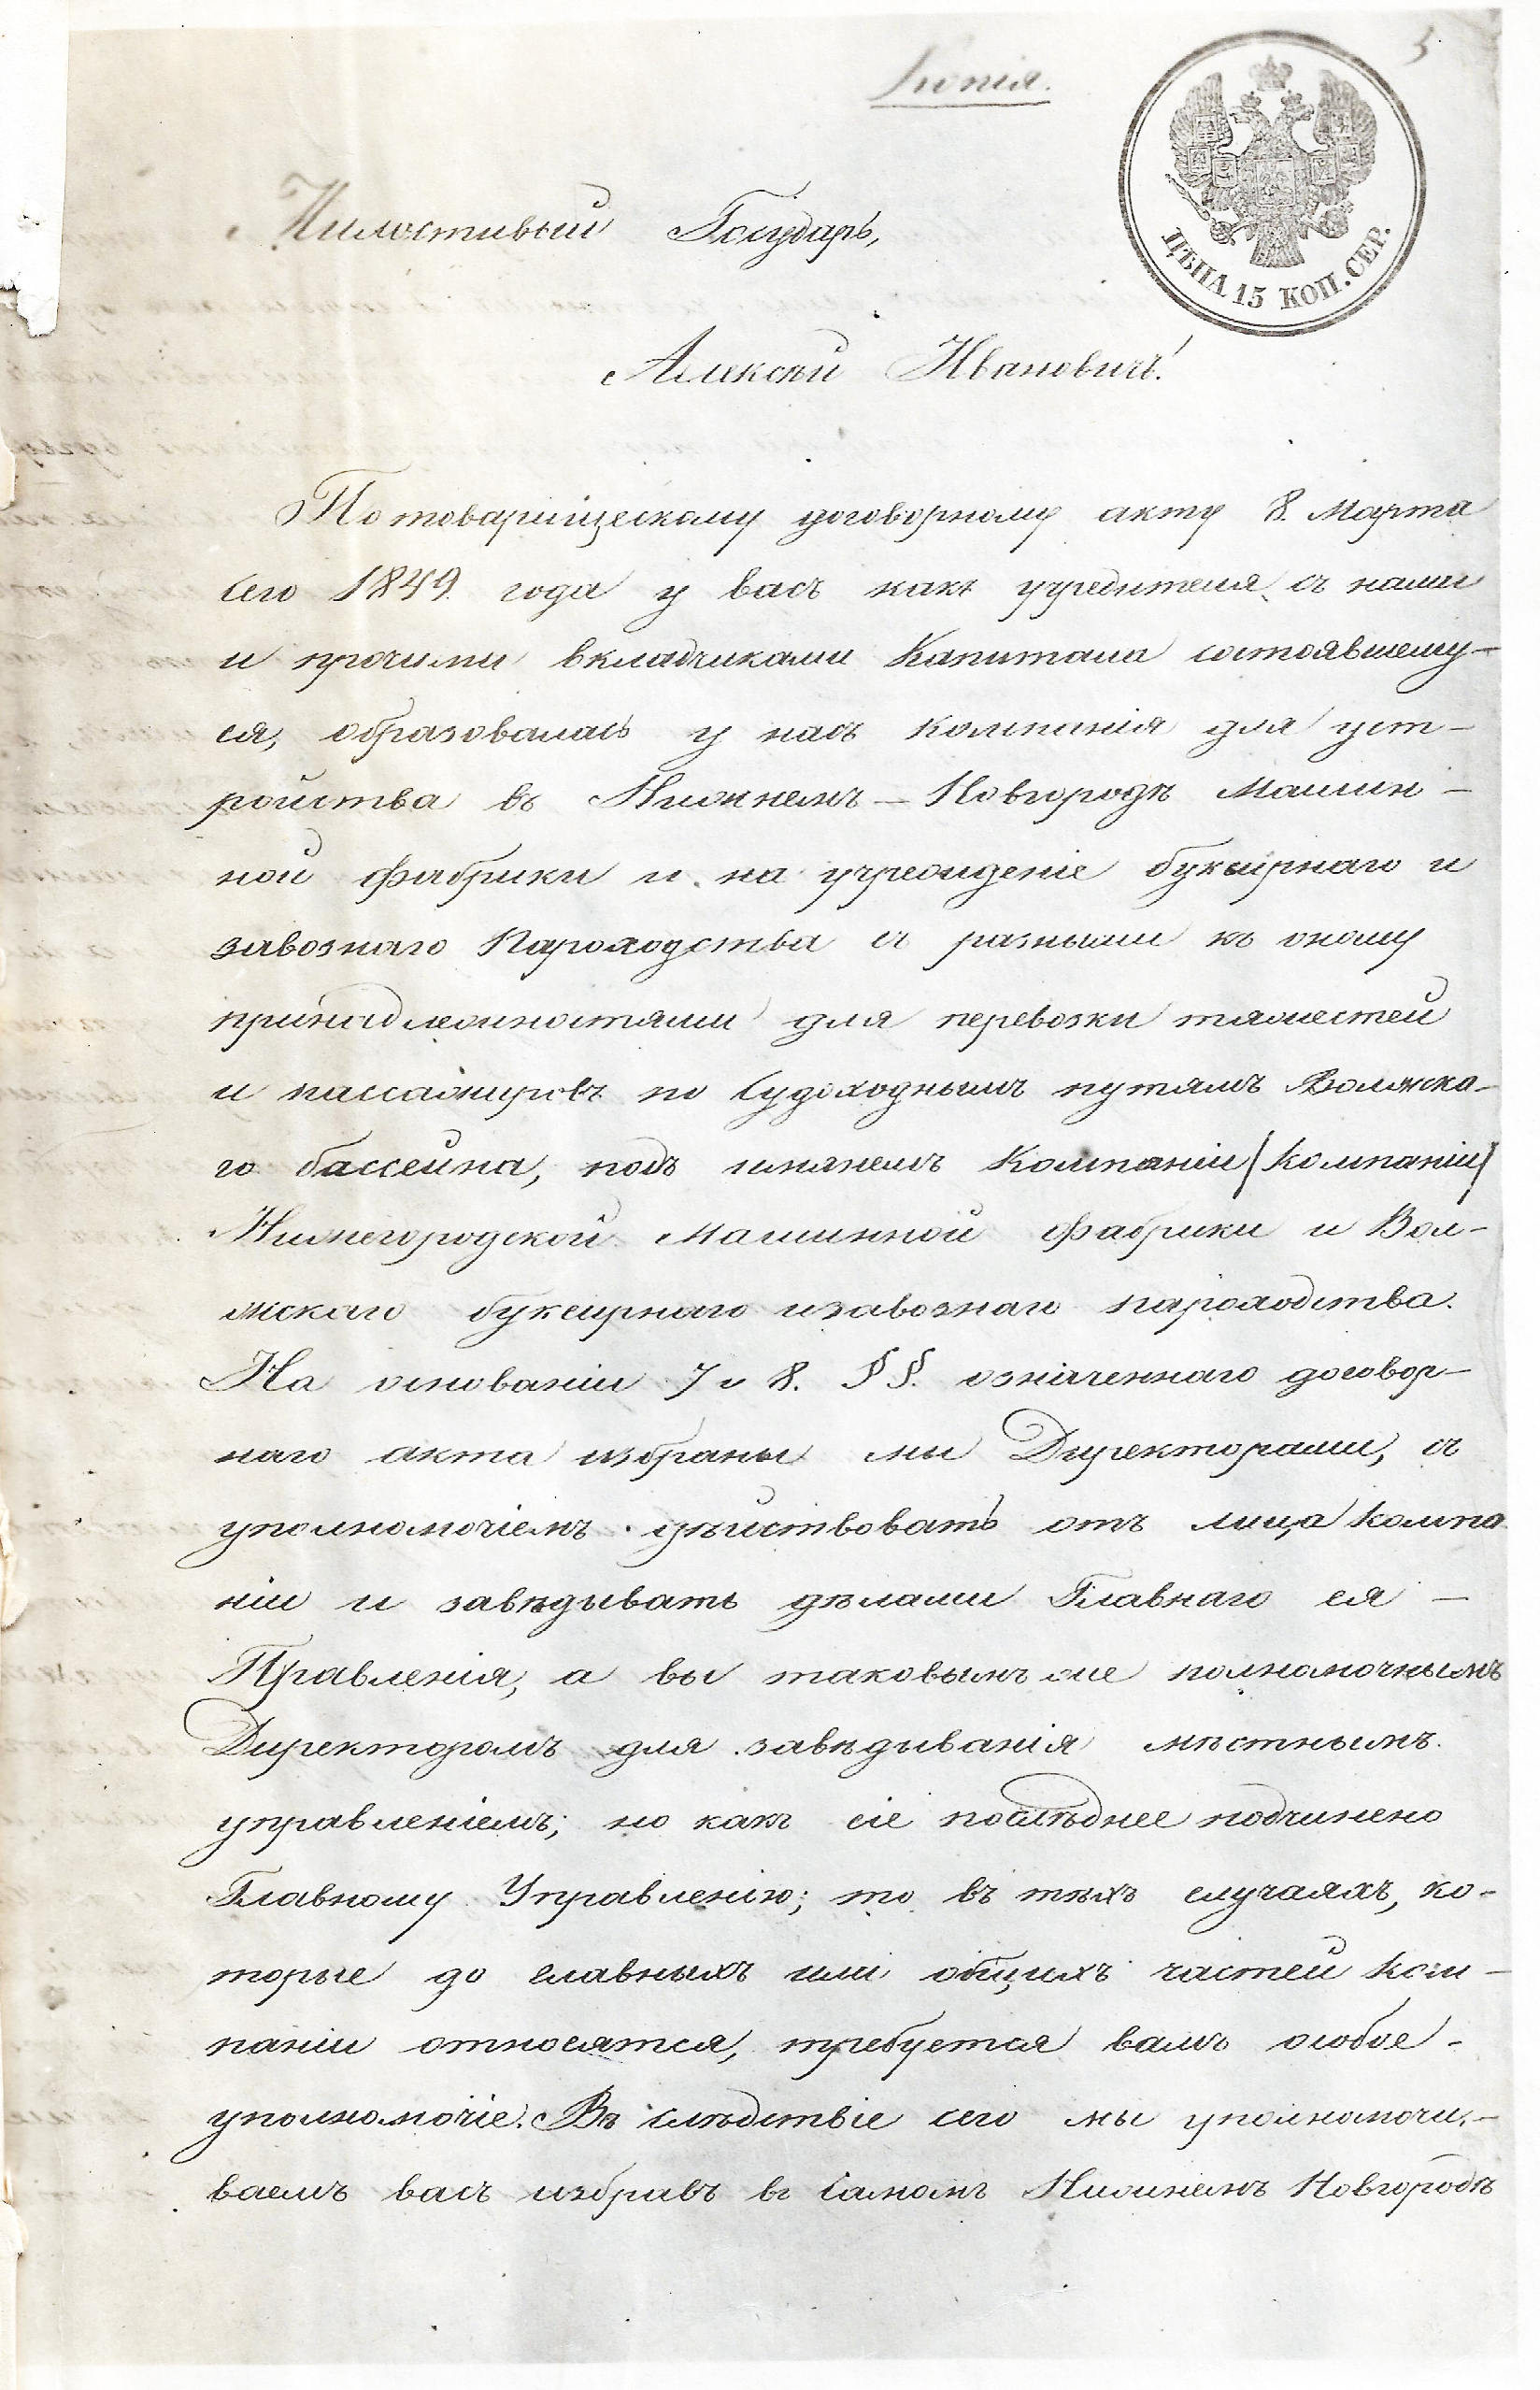 Копія.
5
ЦѢНА 15 КОП. СЕР.
Милостивый Государь,
Алексѣй Ивановичъ!
По товарищескому договорному акту 8. Марта
сего 1849. года у васъ какъ учредителя съ нами
и прочими вкладчиками Капитала состоявшему-
ся, образовалась у насъ компанія для уст-
ройства въ Нижнемъ-Новгородѣ Машин-
ной фабрики и на учрежденіе буксирнаго и
завознаго Пароходства съ разными къ оному
принадлежностями для перевозки тяжестей
и пассажировъ по Судоходнымъ путямъ Волжска-
го бассейна, подъ имянемъ Компаніи (компаніи)
Нижегородской Машинной фабрики и Вол-
жскаго буксирнаго и завознаго пароходства.
На основаніи 7 и 8. §§. означеннаго договор-
наго акта избраны мы Директорами, съ
уполномочіемъ дѣйствовать отъ лица компа
ніи и завѣдывать дѣлами Главнаго ея —
Правленія, а вы таковымъ же полномочнымъ
Директоромъ для завѣдыванія мѣстнымъ
управленіемъ; но какъ сіе послѣднее подчинено
Главному Управленію; то въ тѣхъ случаяхъ, ко-
торые до главныхъ или общихъ частей ком-
паніи относятся, требуется вамъ особое -
уполномочіе. Въ слѣдствіе сего мы уполномочи-
ваемъ васъ избравъ въ Самомъ Нижнемъ Новгородѣ